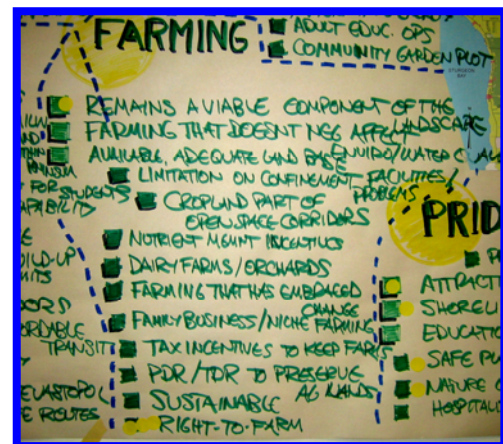 FARMING
ADULT EDUC. OPS
COMMUNITY GARDEN PLOT
STURGEON
BAY
REMAINS A VIABLE COMPONENT OF THE
LANDSCAPE
FARMING THAT DOESNT NEG AFFECT
ENVIRO/WATER
AVAILABLE, ADEQUATE LAND BASE
LIMITATION ON CONFINEMENT FACILITIES/
PROBLEMS
CROPLAND PART OF
OPEN SPACE CORRIDORS
NUTRIENT MGMNT INCENTIVES
DAIRY FARMS/ORCHARDS
FARMING THAT HAS EMBRACED
CHANGE
FAMILY BUSINESS/NICHE FARMING
TAX INCENTIVES TO KEEP FARMS
PDR/TDR TO PRESERVE
AG LANDS
SUSTAINABLE
RIGHT-TO-FARM
FOR STUDENTS
BUILD-UP
TRANSIT
ROUTES
PRID
ATTRACT
SHOREL
EDUCATIO
SAFE
NATURE
HOSPITAL